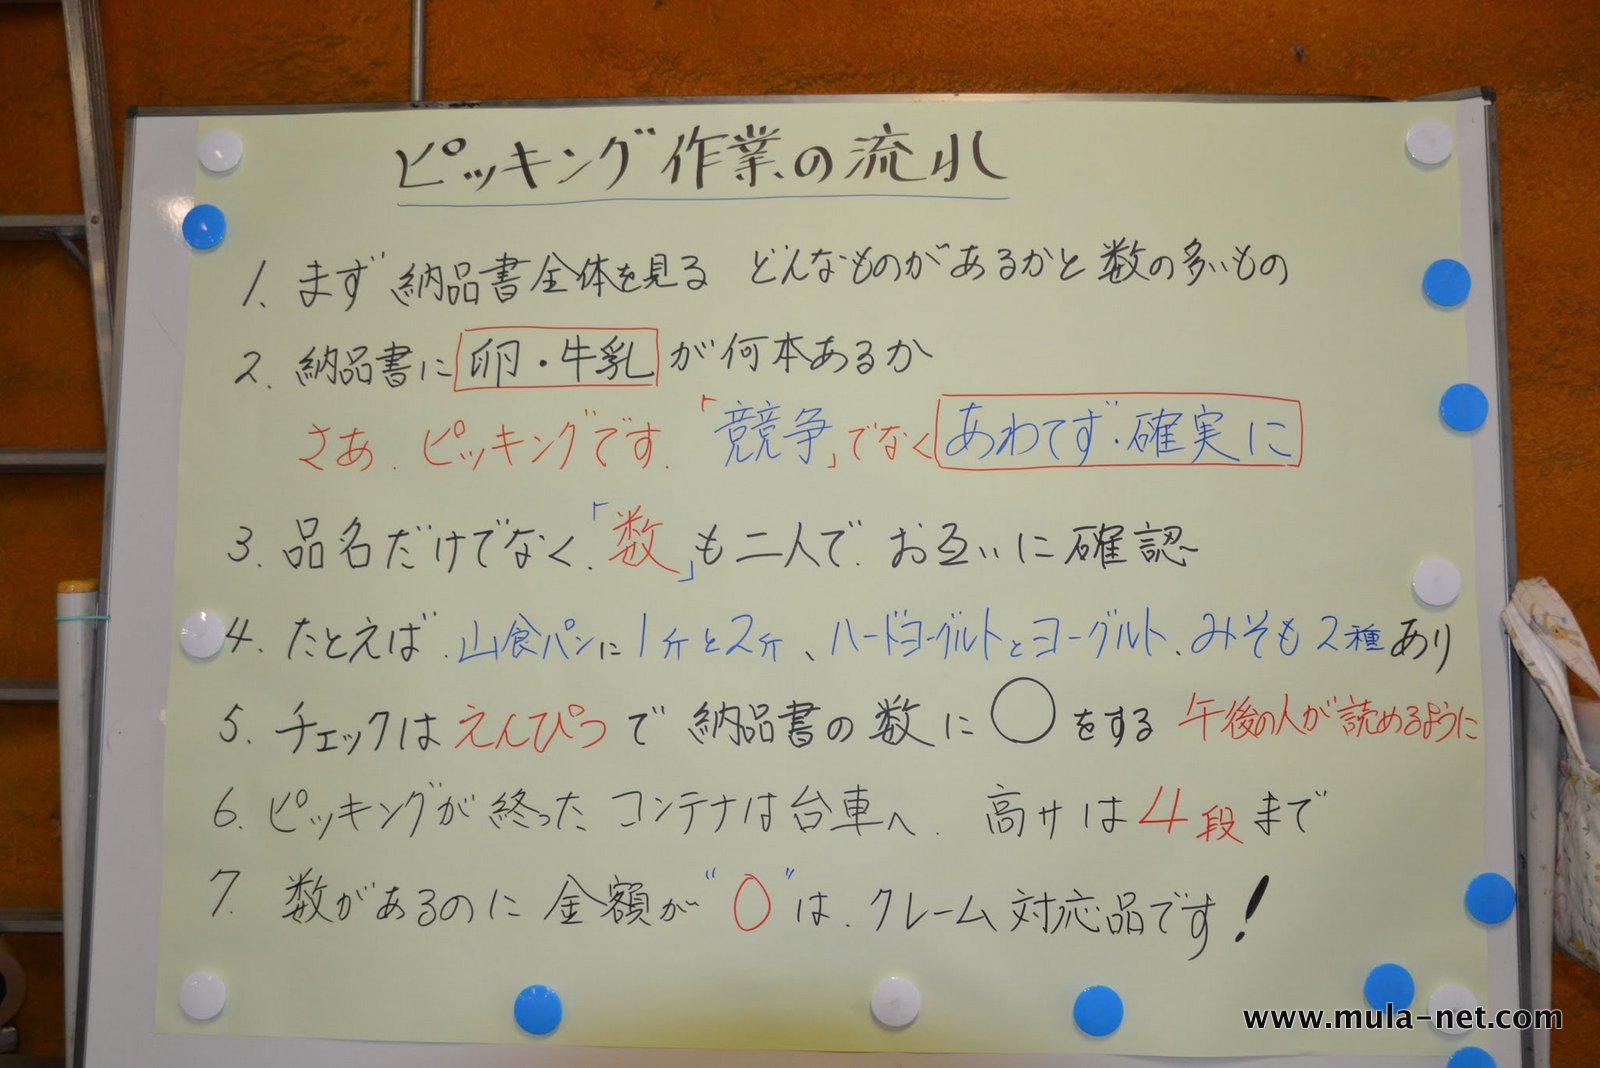 ピッキング作業の流れ
1. まず納品書全体を見る どんなものがあるかと数の多いもの
2. 納品書に卵・牛乳が何本あるか
さあ、ピッキングです。「競争」でなくあわてず・確実に
3. 品名だけでなく、「数」も二人で、お互いに確認
4. たとえば、山食パンに1斤と2斤、ハードヨーグルトとヨーグルト、みそも2種あり
5. チェックはえんぴつで納品書の数に○をする 午後の人が読めるように
6. ピッキングが終ったコンテナは台車へ、高サは4段まで
7. 数があるのに金額が"0"は、クレーム対応品です!
www.mula-net.com